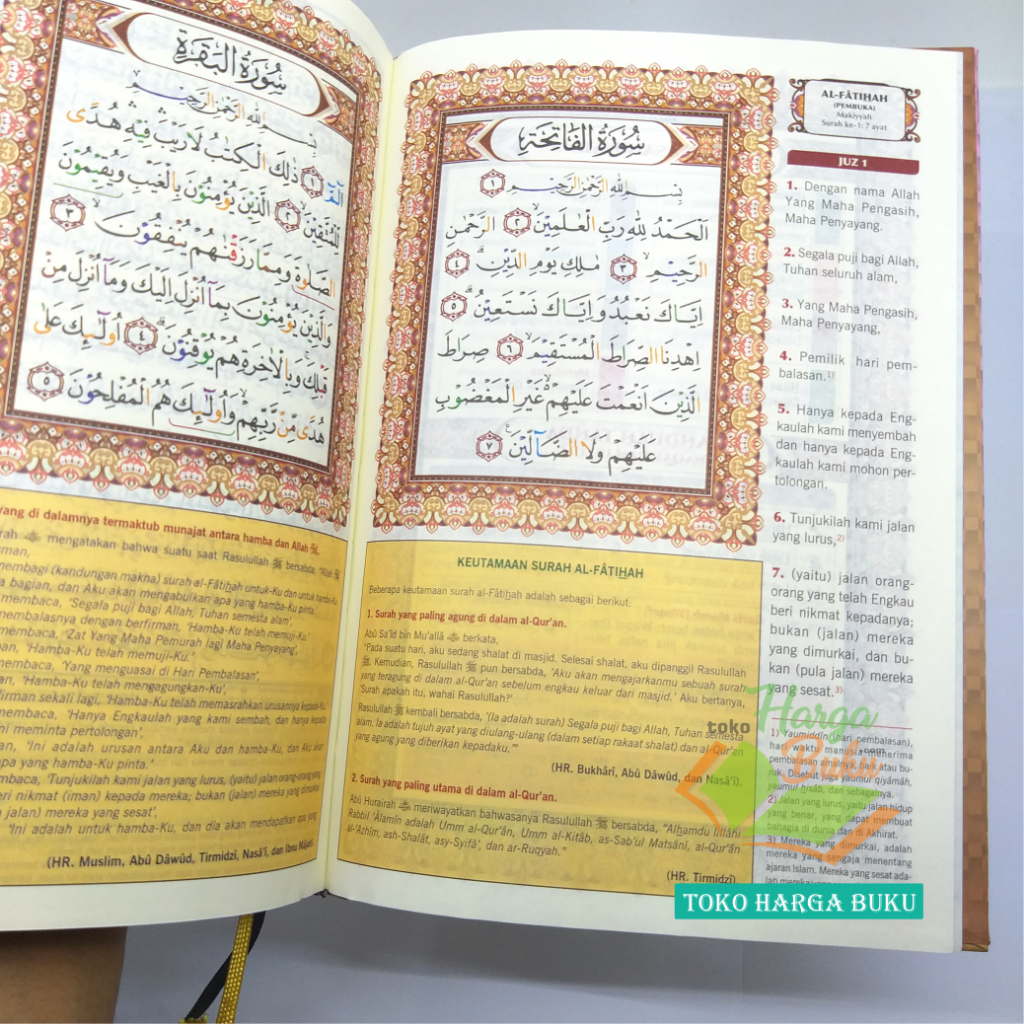 سُورَةُ الْفَاتِحَةِ
بِسْمِ اللهِ الرَّحْمٰنِ الرَّحِيْمِ ١
اَلْحَمْدُ لِلّٰهِ رَبِّ الْعٰلَمِيْنَ ٢ الرَّحْمٰنِ
الرَّحِيْمِ ٣ مٰلِكِ يَوْمِ الدِّيْنِ ٤
اِيَّاكَ نَعْبُدُ وَاِيَّاكَ نَسْتَعِيْنُ ٥
اِهْدِنَا الصِّرَاطَ الْمُسْتَقِيْمَ ٦ صِرَاطَ
الَّذِيْنَ اَنْعَمْتَ عَلَيْهِمْ غَيْرِ الْمَغْضُوْبِ
عَلَيْهِمْ وَلَا الضَّآلِّيْنَ ٧
AL-FÂTIHAH
(PEMBUKA)
Makiyyah
Surah ke-1: 7 ayat
JUZ 1
1. Dengan nama Allah
Yang Maha Pengasih,
Maha Penyayang.
2. Segala puji bagi Allah,
Tuhan seluruh alam,
3. Yang Maha Pengasih,
Maha Penyayang,
4. Pemilik hari pem-
balasan.1)
5. Hanya kepada Eng-
kaulah kami menyembah
dan hanya kepada Eng-
kaulah kami mohon per-
tolongan.
6. Tunjukilah kami jalan
yang lurus,2)
7. (yaitu) jalan orang-
orang yang telah Engkau
beri nikmat kepadanya;
bukan (jalan) mereka
yang dimurkai, dan bu-
kan (pula jalan) mereka
yang sesat.3)
1) Yaumiddîn (hari pembalasan),
hari waktu manusia menerima
pembalasan amalnya, baik atau bu-
ruk. Disebut juga yaumul qiyâmah,
yaumul hisâb, dan sebagainya.
2) Jalan yang lurus, yaitu jalan hidup
yang benar, yang dapat membuat
bahagia di dunia dan di Akhirat.
3) Mereka yang dimurkai, adalah
mereka yang sengaja menentang
ajaran Islam. Mereka yang sesat ada-
KEUTAMAAN SURAH AL-FÂTIHAH
Beberapa keutamaan surah al-Fâtihah adalah sebagai berikut:
1. Surah yang paling agung di dalam al-Qur'an.
Abû Sa'îd bin Mu'allâ berkata,
"Pada suatu hari, aku sedang shalat di masjid. Selesai shalat, aku dipanggil Rasulullah
ﷺ. Kemudian, Rasulullah ﷺ pun bersabda, 'Aku akan mengajarkanmu sebuah surah
yang teragung di dalam al-Qur'an sebelum engkau keluar dari masjid.' Aku bertanya,
'Surah apakah itu, wahai Rasulullah?'
Rasulullah ﷺ kembali bersabda, '(Ia adalah surah) Segala puji bagi Allah, Tuhan semesta
alam, Ia adalah tujuh ayat yang diulang-ulang (dalam setiap rakaat shalat) dan al-Qur'an
yang agung yang diberikan kepadaku.'"
(HR. Bukhârî, Abû Dâwûd, dan Nasâ'î).
2. Surah yang paling utama di dalam al-Qur'an.
Abû Hurairah meriwayatkan bahwasanya Rasulullah ﷺ bersabda, "Alhamdu lillâhi
Rabbil 'Âlamîn adalah Umm al-Qur'ân, Umm al-Kitâb, as-Sab'ul Matsânî, al-Qur'ân
al-'Azhîm, ash-Shalât, asy-Syifâ', dan ar-Ruqyah."
(HR. Tirmidzî).
سُورَةُ الْبَقَرَةِ
بِسْمِ اللهِ الرَّحْمٰنِ الرَّحِيْمِ
الۤمّۤ ١ ذٰلِكَ الْكِتٰبُ لَا رَيْبَ فِيْهِ هُدًى
لِّلْمُتَّقِيْنَ ٢ الَّذِيْنَ يُؤْمِنُوْنَ بِالْغَيْبِ وَيُقِيْمُوْنَ
الصَّلٰوةَ وَمِمَّا رَزَقْنٰهُمْ يُنْفِقُوْنَ ٣
وَالَّذِيْنَ يُؤْمِنُوْنَ بِمَآ اُنْزِلَ اِلَيْكَ وَمَآ اُنْزِلَ مِنْ
قَبْلِكَ وَبِالْاٰخِرَةِ هُمْ يُوْقِنُوْنَ ٤ اُولٰۤىِٕكَ عَلٰى
هُدًى مِّنْ رَّبِّهِمْ وَاُولٰۤىِٕكَ هُمُ الْمُفْلِحُوْنَ ٥
yang di dalamnya termaktub munajat antara hamba dan Allah
mengatakan bahwa suatu saat Rasulullah ﷺ bersabda, "Allah
(kandungan makna) surah al-Fâtihah untuk-Ku dan untuk hamba-
bagian, dan Aku akan mengabulkan apa yang hamba-Ku pinta.'
membaca, 'Segala puji bagi Allah, Tuhan semesta alam',
membalasnya dengan berfirman, 'Hamba-Ku telah memuji-Ku.'
membaca, 'Zat Yang Maha Pemurah lagi Maha Penyayang',
'Hamba-Ku telah memuji-Ku.'
membaca, 'Yang menguasai di Hari Pembalasan',
'Hamba-Ku telah mengagungkan-Ku',
sekali lagi, 'Hamba-Ku telah memasrahkan urusannya kepada-Ku.'
membaca, 'Hanya Engkaulah yang kami sembah, dan hanya kepada
meminta pertolongan',
'Ini adalah urusan antara Aku dan hamba-Ku, dan Aku akan
apa yang hamba-Ku pinta.'
'Tunjukilah kami jalan yang lurus, (yaitu) jalan orang-orang yang
nikmat (iman) kepada mereka; bukan (jalan) mereka yang dimurkai
jalan) mereka yang sesat',
'Ini adalah untuk hamba-Ku, dan dia akan mendapatkan apa yang
(HR. Muslim, Abû Dâwûd, Tirmidzî, Nasâ'î, dan Ibnu
toko Harga
Buku.com
TOKO HARGA BUKU